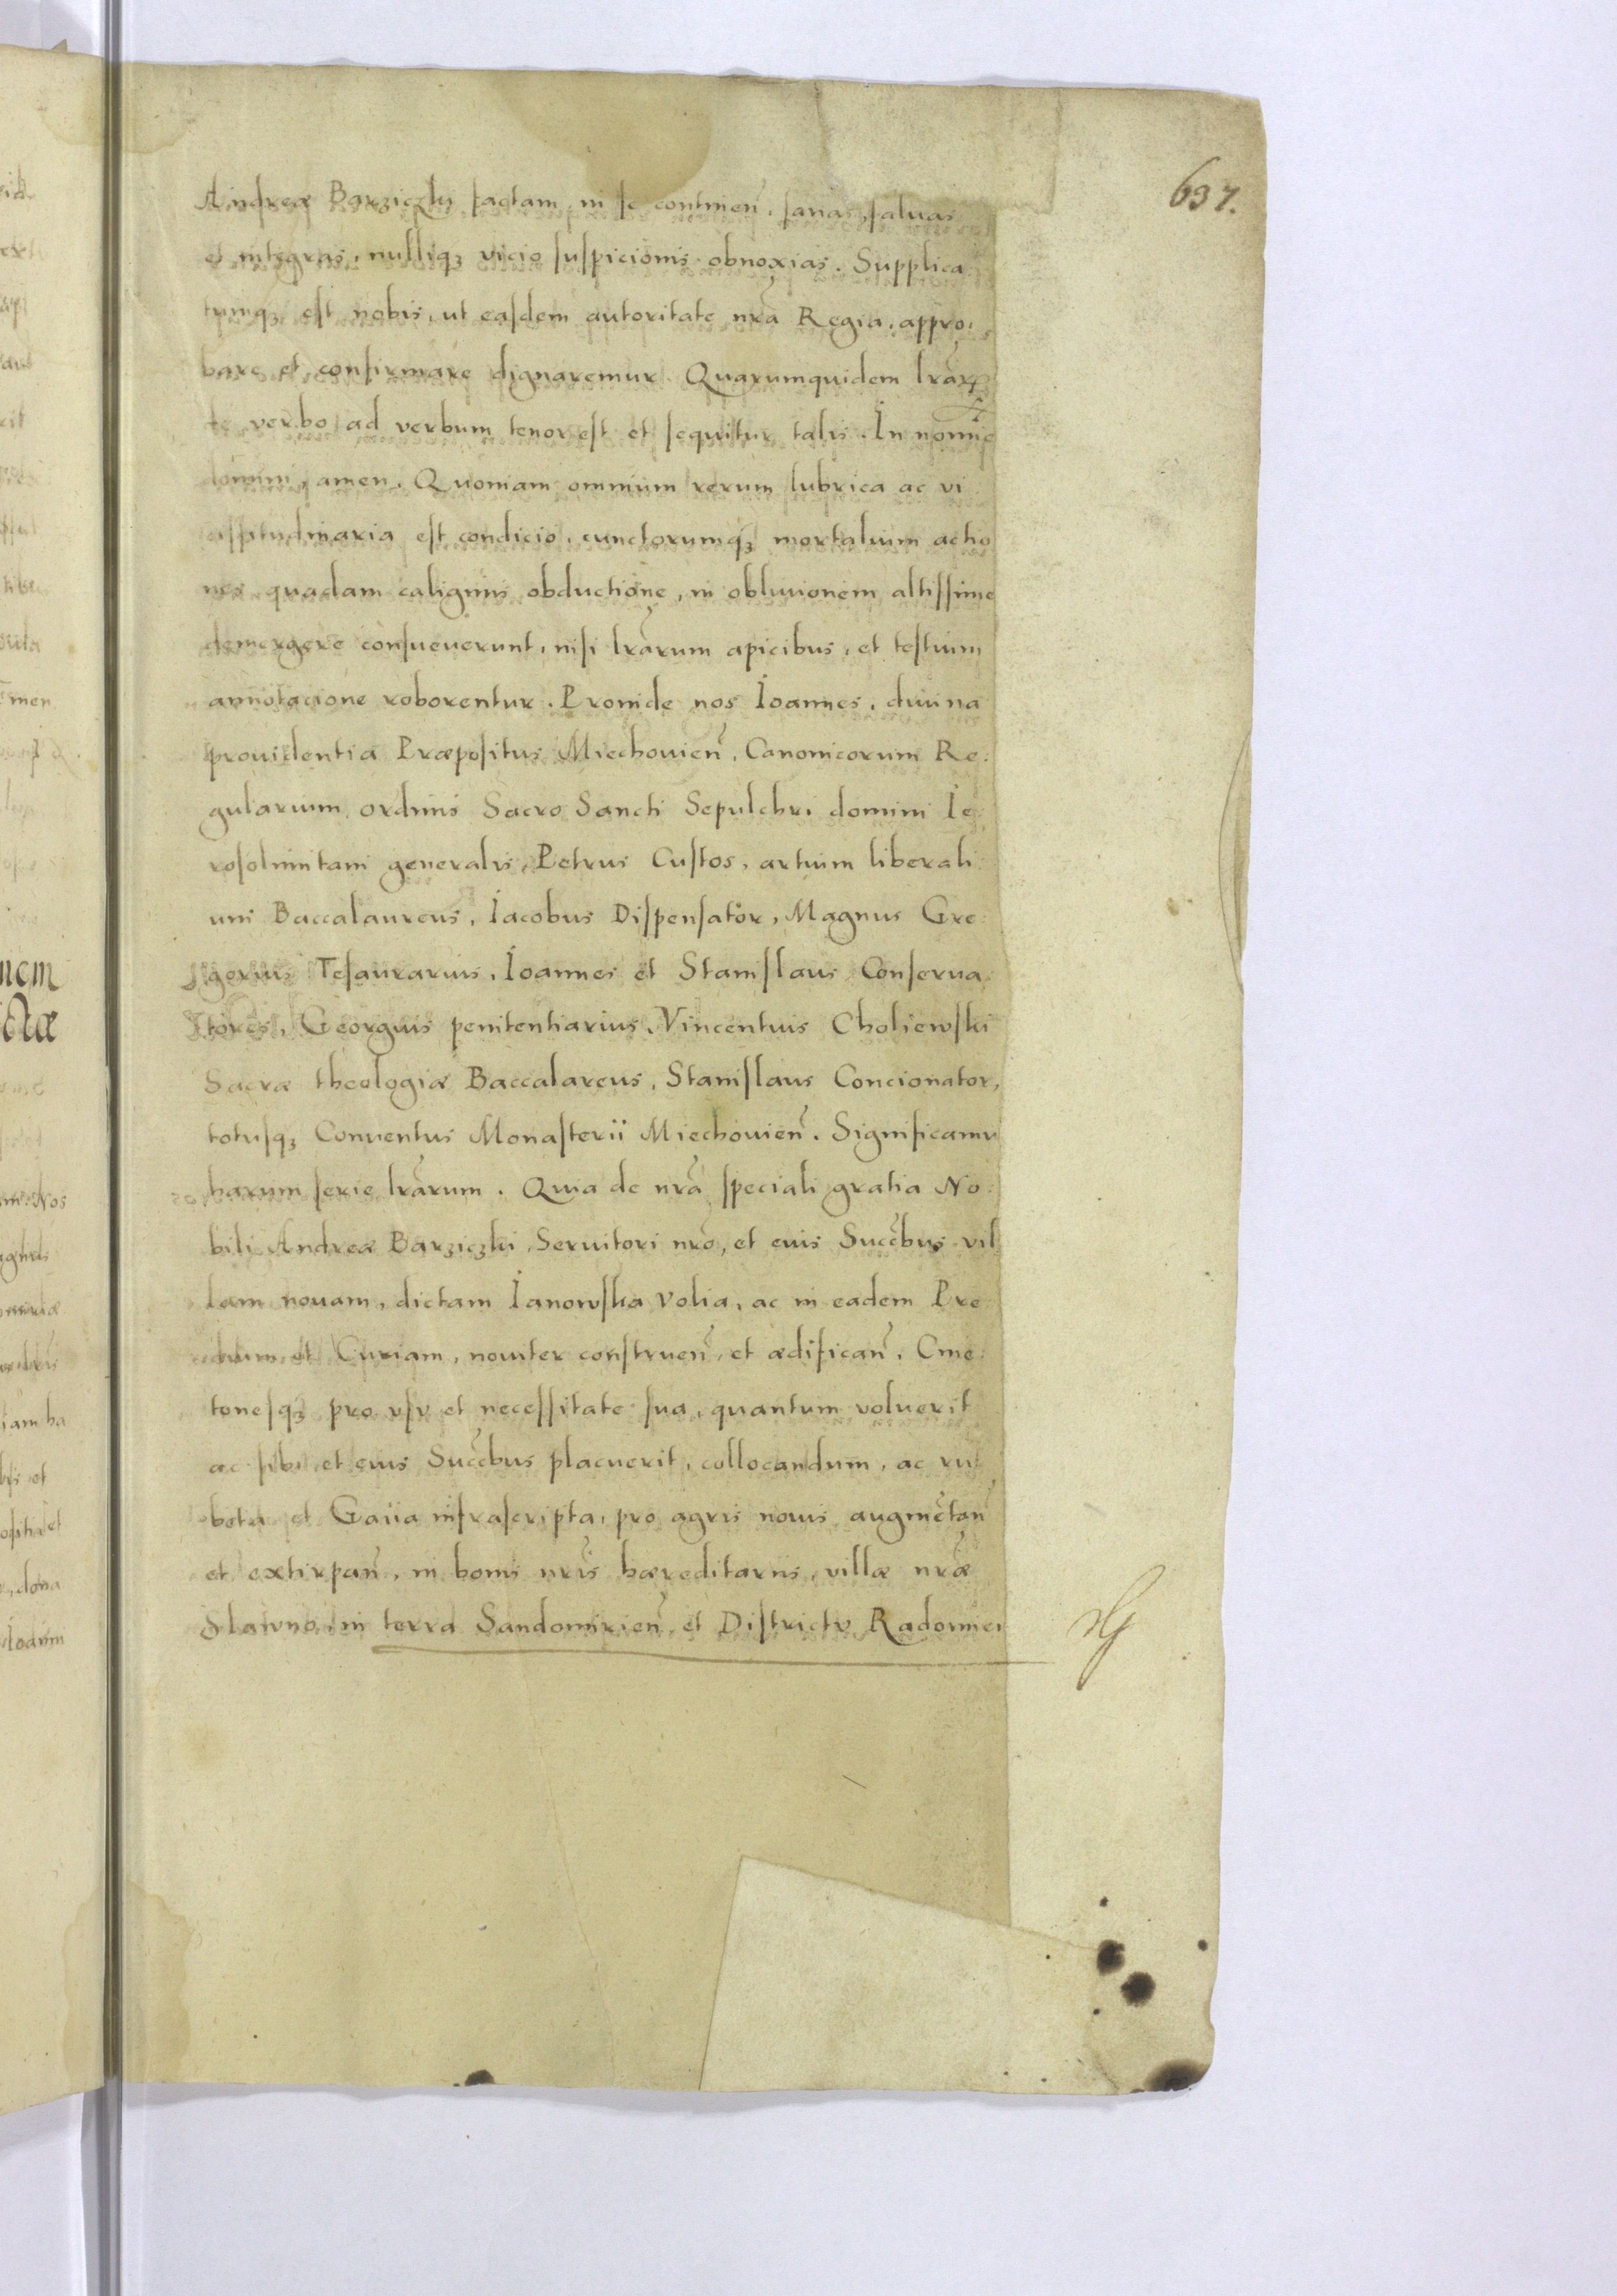 637.
Andreæ Barziczky factam, in se continen̄, sanas, saluas
et integras, nulliqȝ vicio suspicionis obnoxias. Supplica
tumqȝ est nobis, ut easdem autoritate nr̄a Regia, appro,
bare et confirmare dignaremur. Quarumquidem lr̄aꝝ
de verbo ad verbum tenor est et sequitur talis. In nomīe
domini, amen. Quoniam omnium rerum lubrica ac vi
cissitudinaria est condicio, cunctorumqȝ mortalium actio
nes quadam caliginis obductione, in obliuionem altissime
demergere consueuerunt, nisi lr̄arum apicibus, et testium
annotacione roborentur. Proinde nos Ioannes, diuina
prouidentia Præpositus Miechouien̄, Canonicorum Re:
gularium, ordinis Sacro Sancti Sepulchri domini Ie
rosolimitani generalis, Petrus Custos, artium liberali
um Baccalaureus, Iacobus Dispensator, Magnus Gre
gorius Tesaurarius, Ioannes et Stanislaus Conserua
tores, Georgius penitentiarius, Vincentius Choliewski
Sacræ theologiæ Baccalareus, Stanislaus Concionator,
totusqȝ Conuentus Monasterii Miechouien̄. Significamu
harum serie lr̄arum. Quia de nr̄a speciali gratia No:
bili Andreæ Barziczki, Seruitori nr̄o, et eius Succ̄bus vil
lam nouam, dictam Ianowska Volia, ac in eadem Pre
dium et Curiam, nouiter construen̄, et ædifican̄. Cme
tonesqȝ pro vsv et necessitate sua, quantum voluerit
ac sibi et eius Succ̄bus placuerit, collocandum, ac ru
beta et Gaiia infrascripta, pro agris nouis augmētan̄
et extirpan̄, in bonis nr̄is hæreditariis, villæ nr̄æ
Slawno, in terra Sandomirien̄ et Districtv Radomien